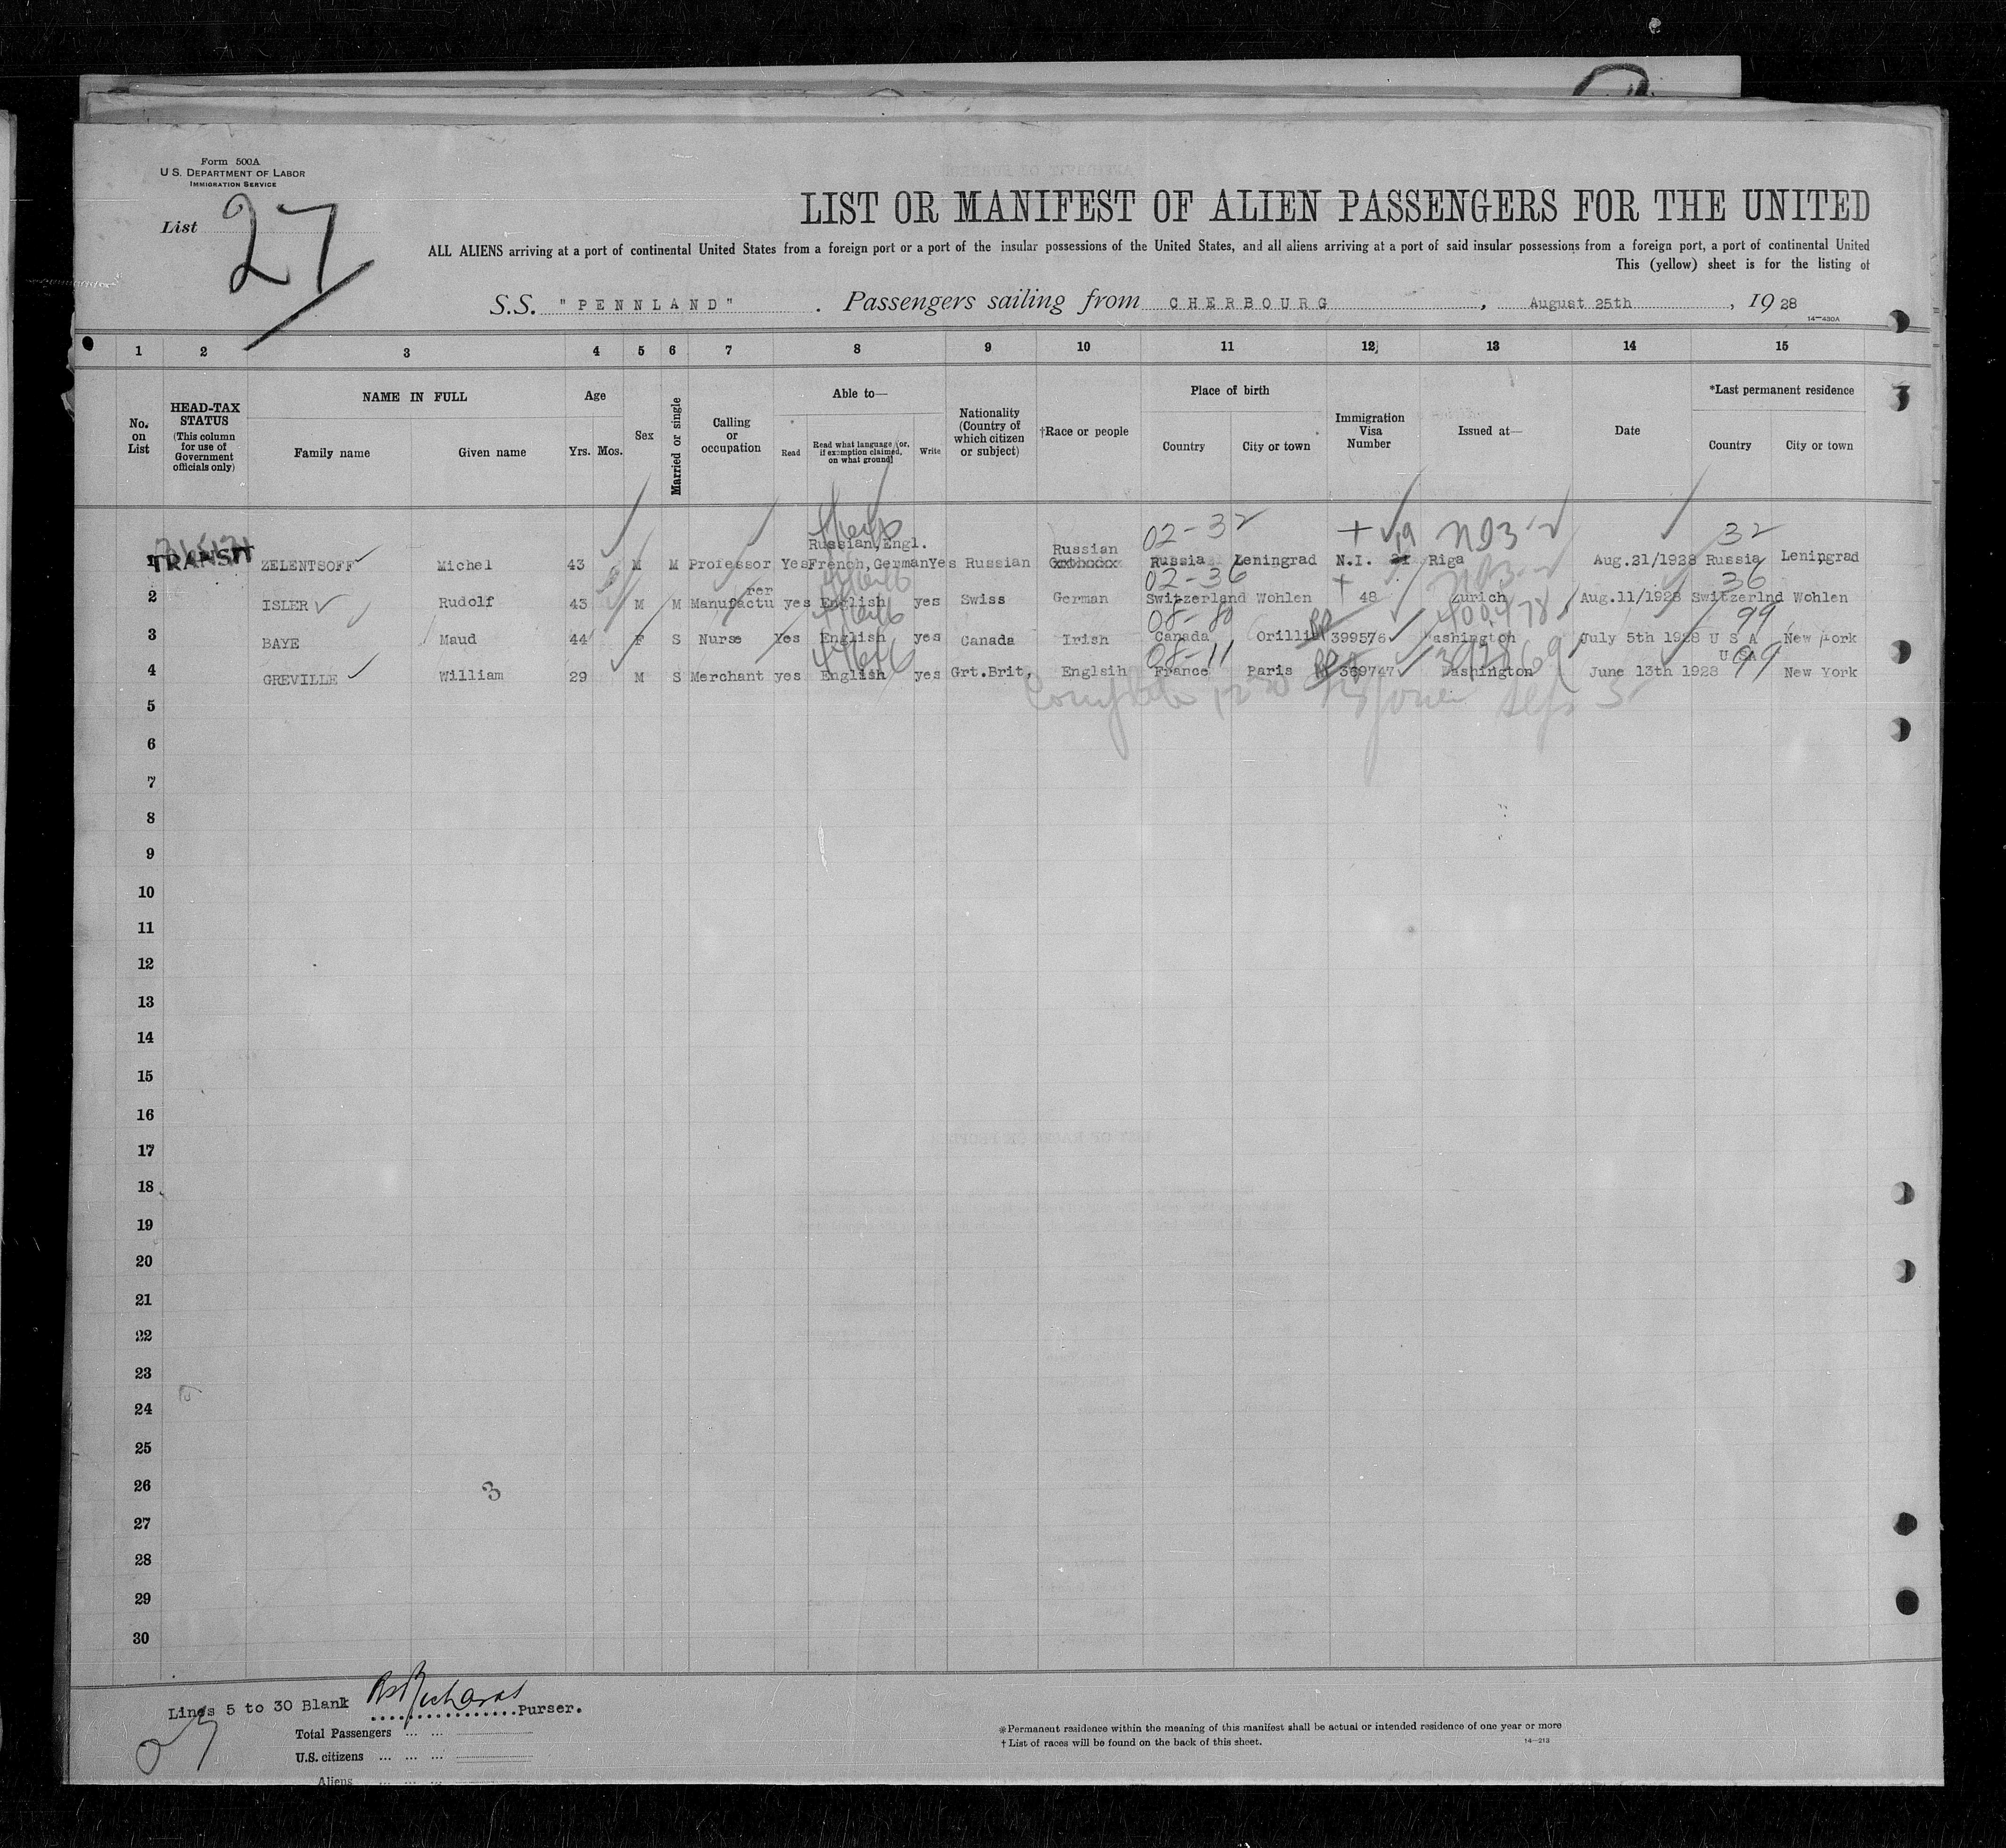 Form 500A
U.S. DEPARTMENT OF LABOR
IMMIGRATION SERVICE
List 27
LIST OR MANIFEST OF ALIEN PASSENGERS FOR THE UNITED
ALL ALIENS arriving at a port of continental United States from a foreign port or a port of the insular possessions of the United States, and all aliens arriving at a port of said insular possessions from a foreign port, a port of continental United
This (yellow) sheet is for the listing of
S.S. "PENNLAND". Passengers sailing from CHERBOURG, August 25th, 1928
14-430A
1 2 3 4 5 6 7 8 9 10 11 12 13 14 15
No. on List
HEAD-TAX STATUS (This column for use of Government officials only)
NAME IN FULL
Family name Given name
Age
Yrs. Mos.
Sex
Married or single
Calling or occupation
Able to—
Read Read what language (or, if exemption claimed, on what ground) Write
Nationality (Country of which citizen or subject)
†Race or people
Place of birth
Country City or town
Immigration Visa Number
Issued at—
Date
*Last permanent residence
Country City or town
02-32 + 19 32
Russian, Engl. Russian
1 TRANSIT ZELENTSOFF Michel 43 M M Professor Yes French, German Yes Russian Russia Leningrad N.I. 21 Riga Aug.21/1928 Russia Leningrad
02-36 + 36
rer
2 ISLER Rudolf 43 M M Manufactu yes English yes Swiss German Switzerland Wohlen 48 Zurich Aug.11/1928 Switzerlnd Wohlen
08-80 400478 99
3 BAYE Maud 44 F S Nurse Yes English yes Canada Irish Canada Orillia RP 399576 Washington July 5th 1928 U S A New York
08-11 392869 99
U SA
4 GREVILLE William 29 M S Merchant yes English yes Grt.Brit, Englsih France Paris RP 369747 Washington June 13th 1928 New York
5
6
7
8
9
10
11
12
13
14
15
16
17
18
19
20
21
22
23
24
25
26 3
27
28
29
30
Lines 5 to 30 Blank Richards Purser.
Total Passengers ... ...
U.S. citizens ... ... ...
Aliens ... ... ...
*Permanent residence within the meaning of this manifest shall be actual or intended residence of one year or more
† List of races will be found on the back of this sheet.
14-213